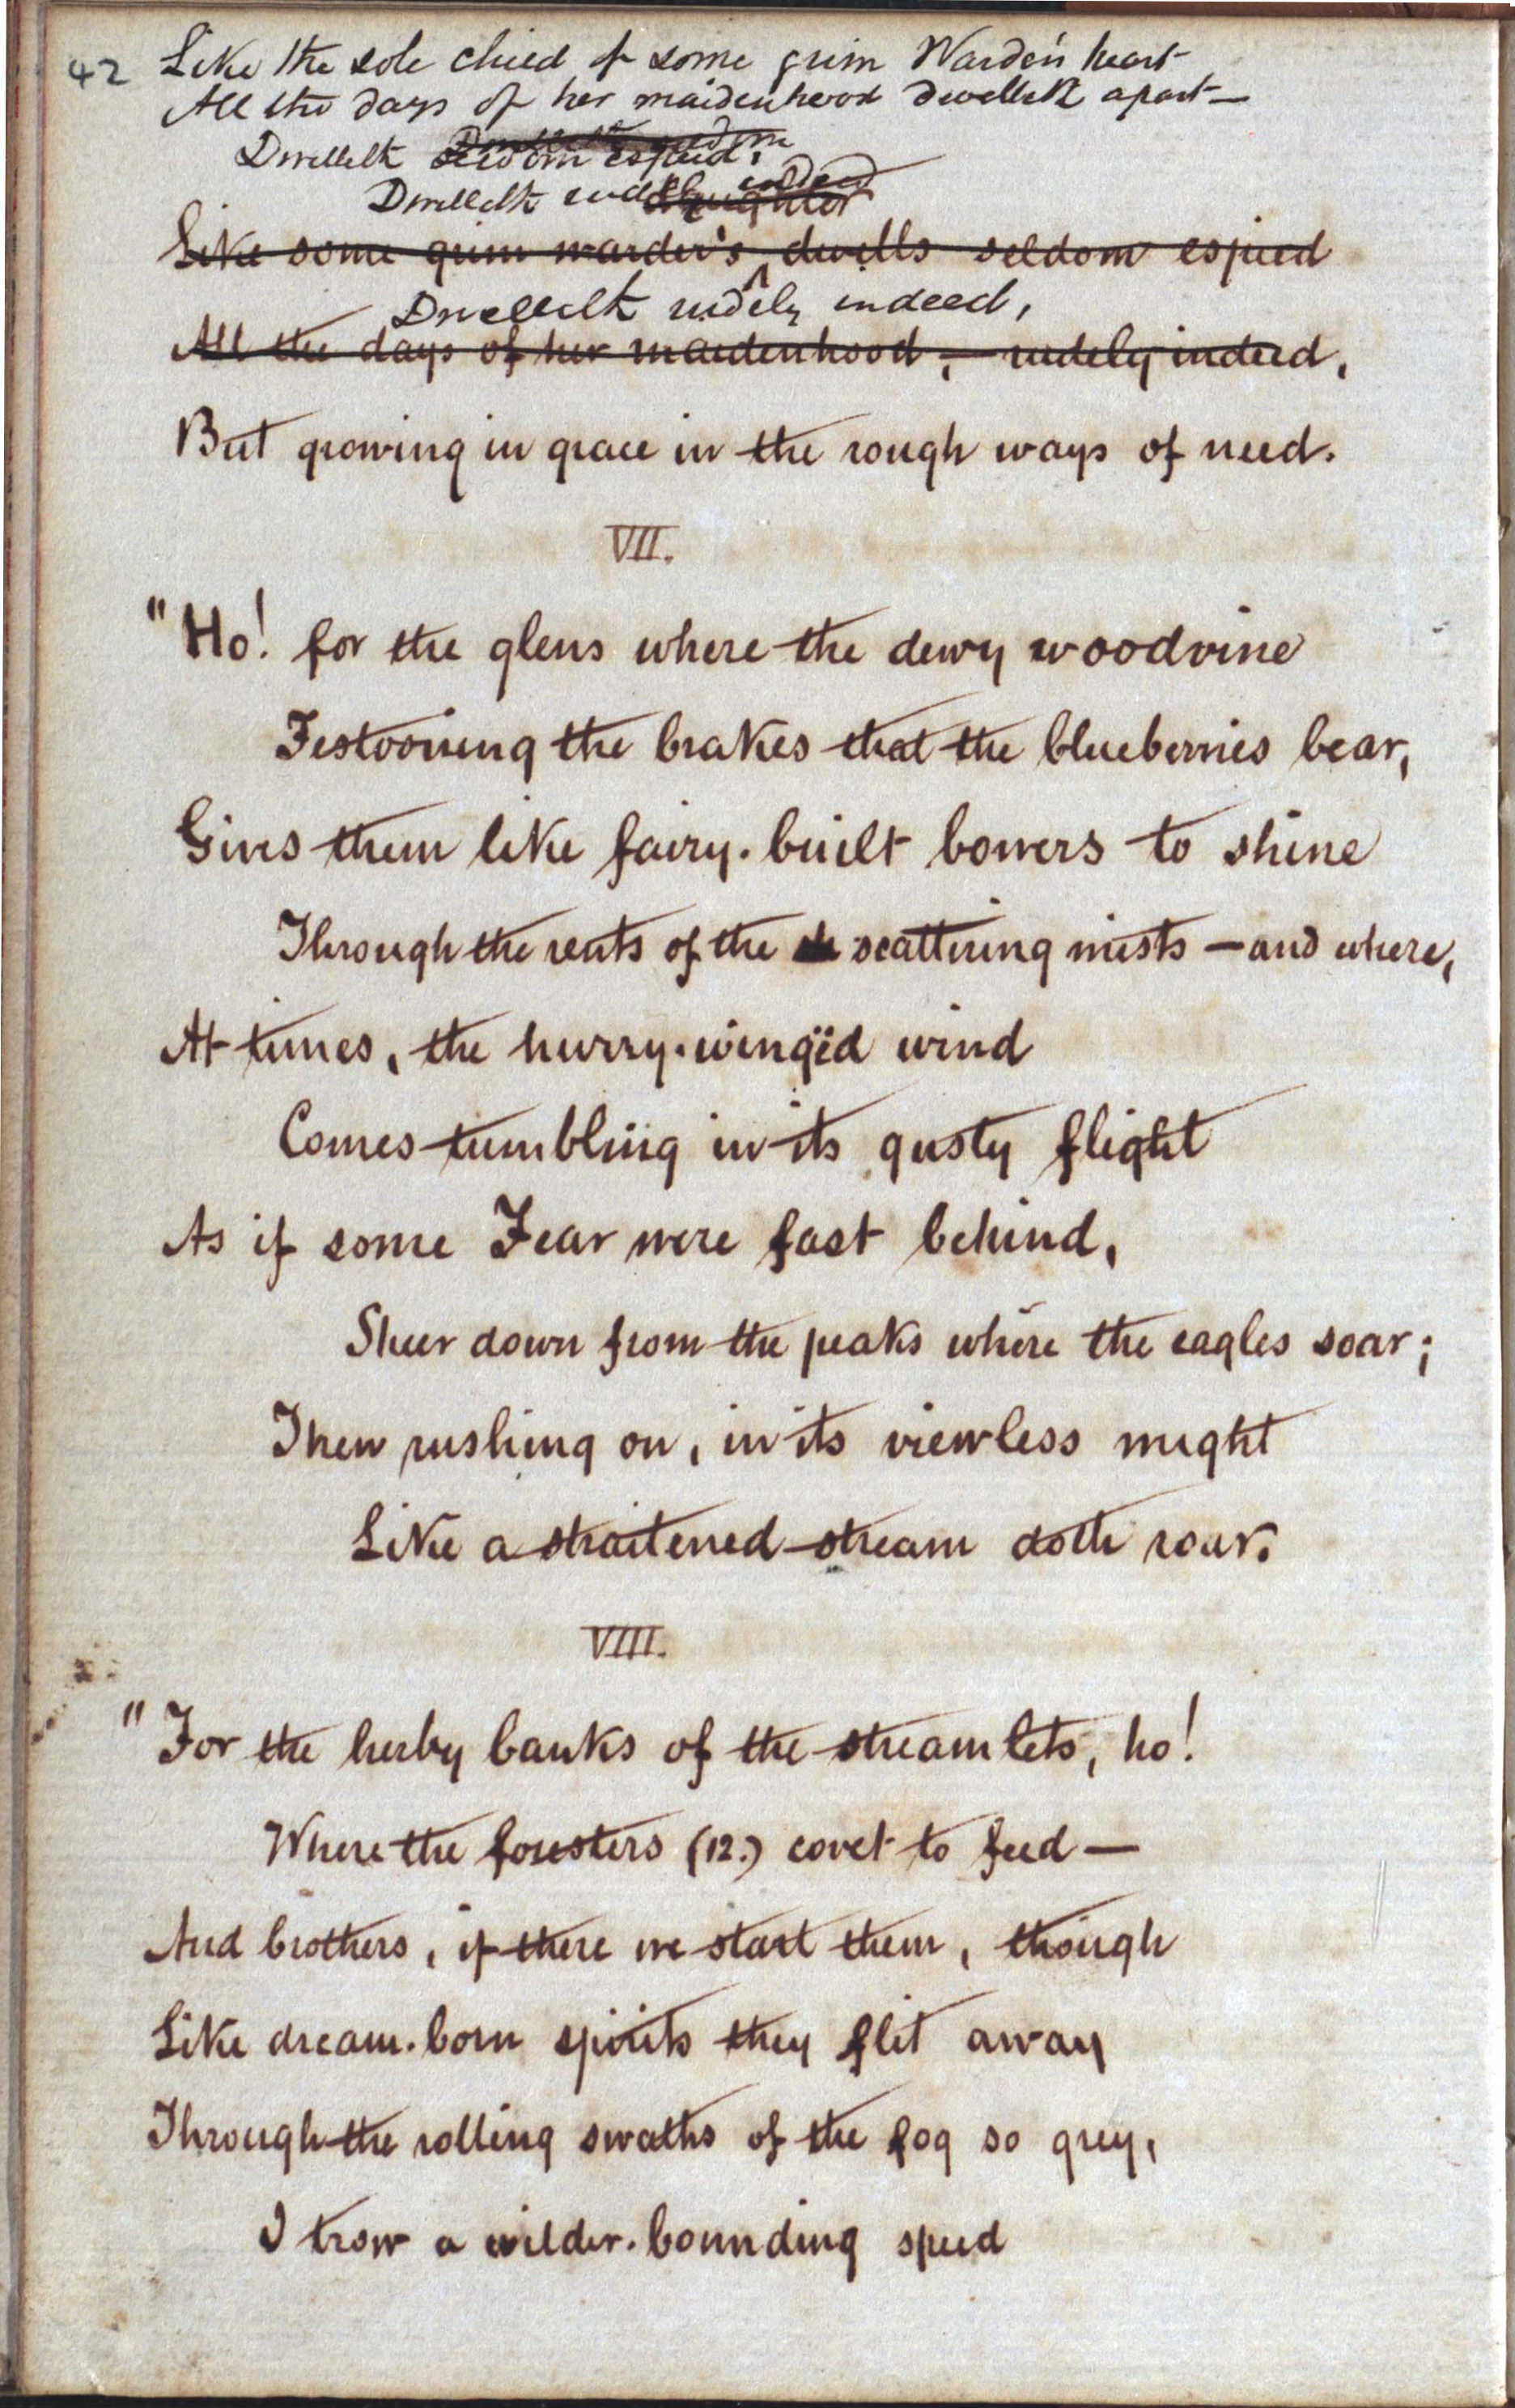 42 Like the sole child of some grim Warden's heart
All the days of her maidenhood dwelleth apart—
Dwelleth seldom espied,
Dwelleth rudely indeed
daughter
Like some grim warder's dwells seldom espied
Dwelleth rudely indeed,
All the days of her maidenhood, — rudely indeed,
But growing in grace in the rough ways of need.
VII.
"Ho! for the glens where the dewy woodvine
Festooning the brakes that the blueberries bear,
Gives them like fairy-built bowers to shine
Through the rents of the scattering mists — and where,
At times, the hurry-wingëd wind
Comes tumbling in its gusty flight
As if some Fear were fast behind,
Sheer down from the peaks where the eagles soar;
Then rushing on, in its viewless might
Like a straitened stream doth roar.
VIII.
"For the herby banks of the streamlets, ho!
Where the foresters (12.) covet to feed —
And brothers, if there we start them, though
Like dream-born spirits they flit away
Through the rolling swaths of the fog so grey,
I trow a wilder-bounding speed